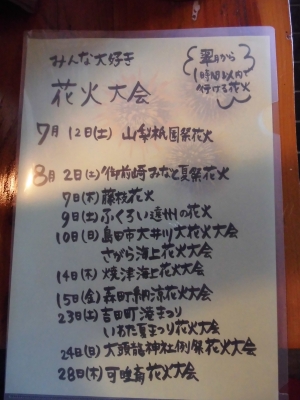 みんな大好き
花火大会
翠月から
1時間以内で
行ける花火
7月 12日(土) 山梨祇園祭花火
8月 2日(土) 御前崎みなと夏祭花火
7日(木) 藤枝花火
9日(土) ふくろい遠州の花火
10日(日) 島田市大井川大花火大会
さがら海上花火大会
14日(木) 焼津海上花火大会
15日(金) 森町納涼花火大会
23日(土) 吉田町港まつり
いわた夏まつり花火大会
24日(日) 大頭龍神社例祭花火大会
28日(木) 可睡斎花火大会